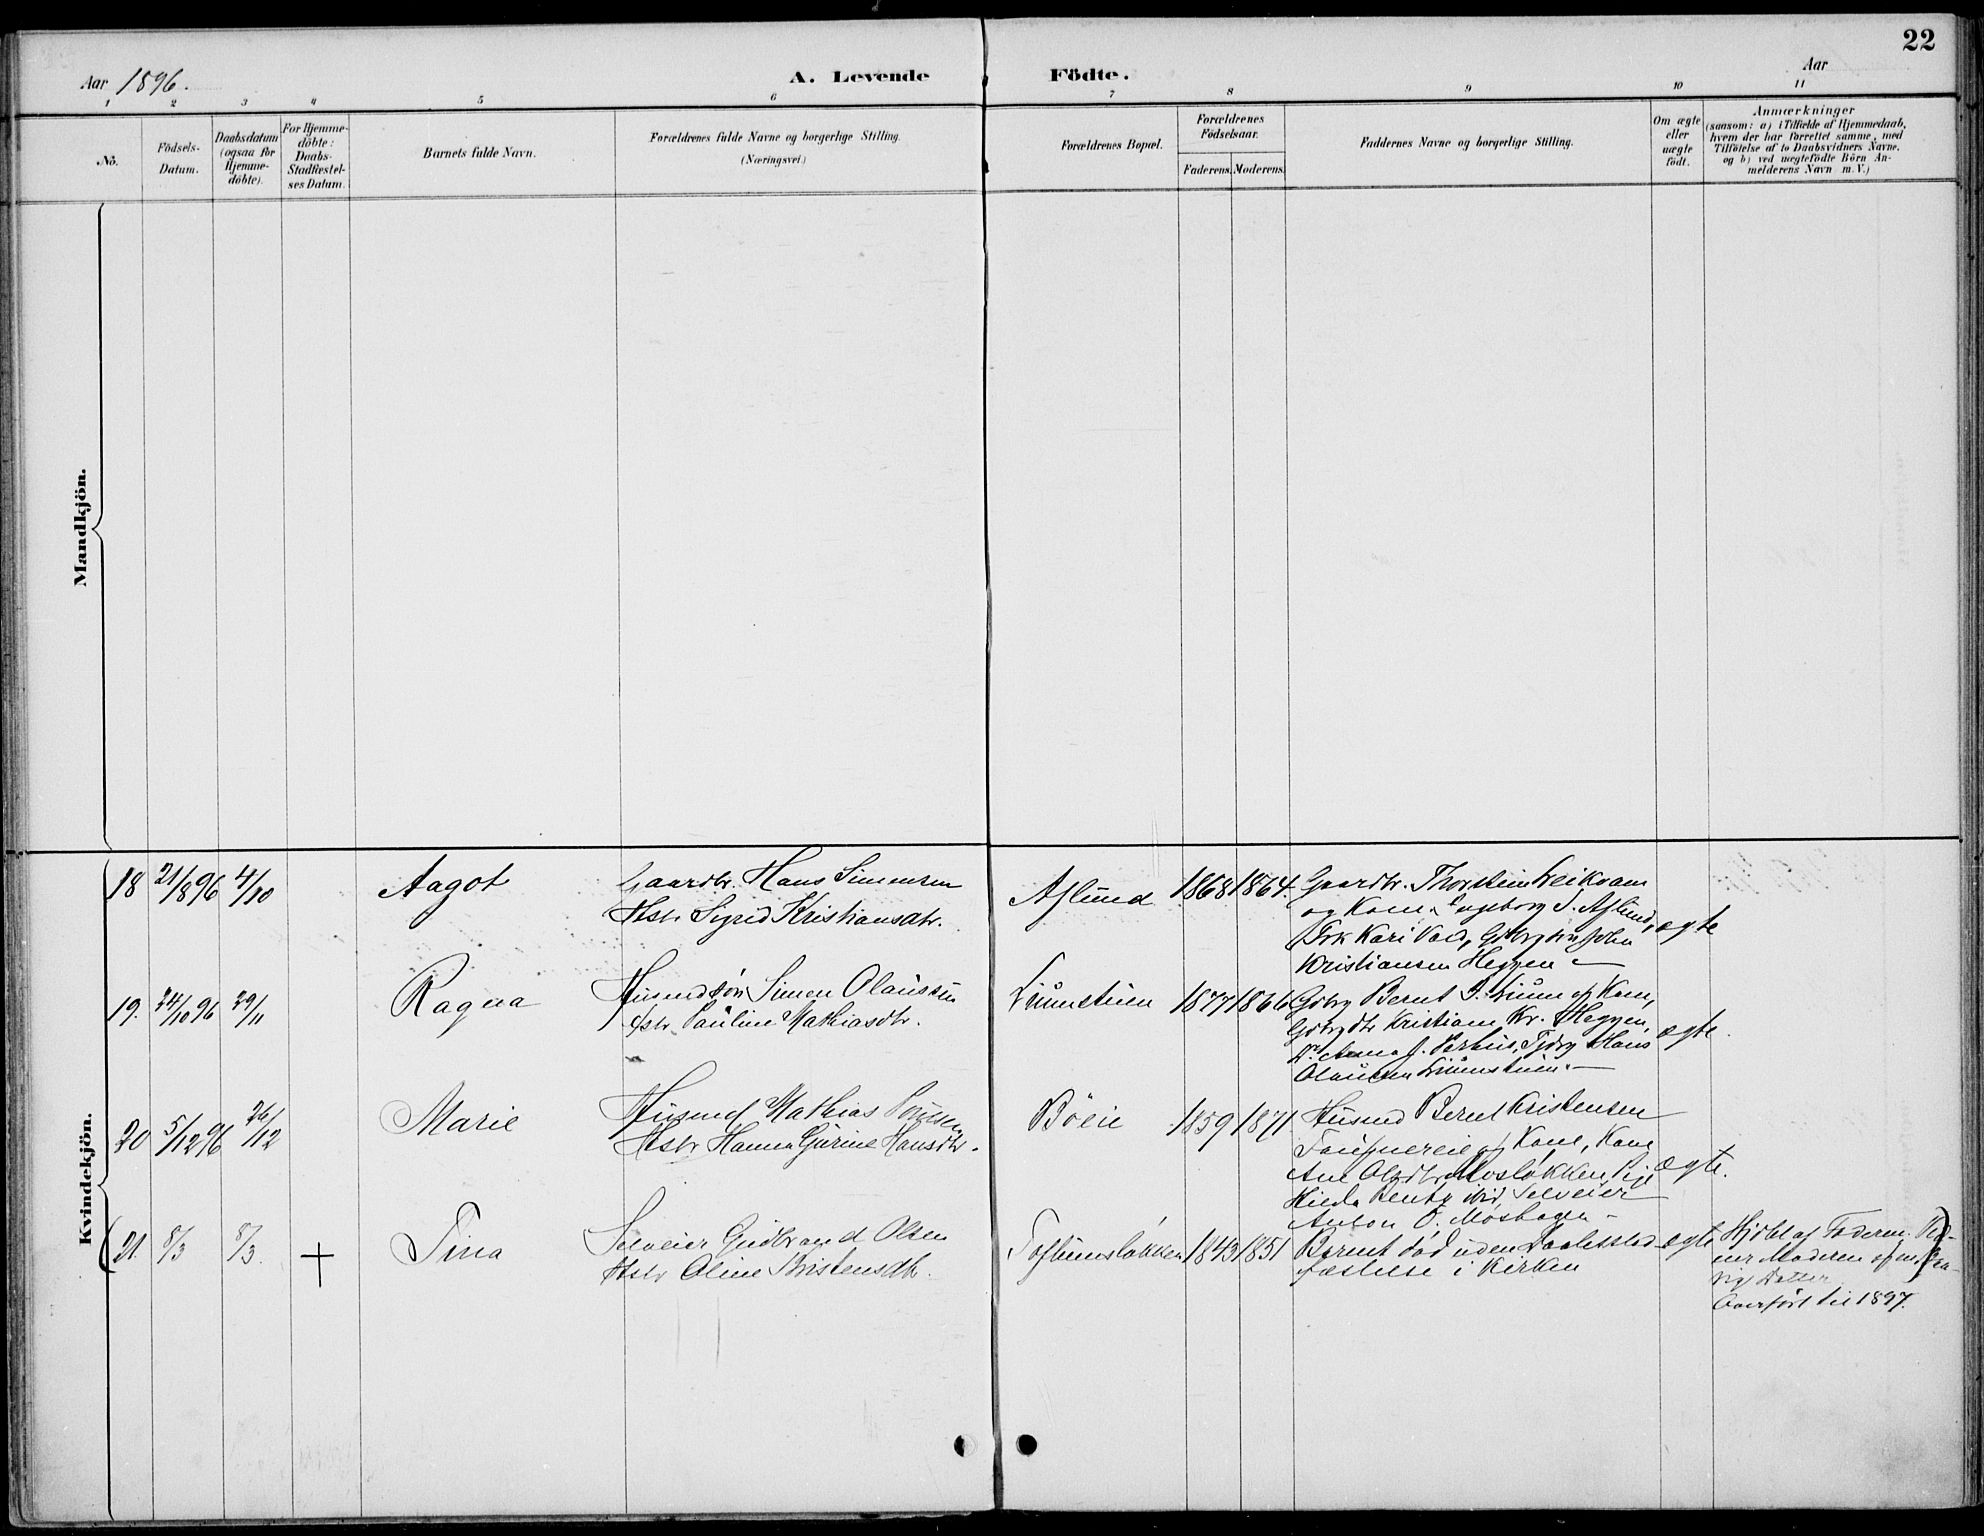 22
Aar 1896.
A. Levende Födte.
Aar
1 2 3 4 5 6 7 8 9 10 11
No.
Födsels-
Datum.
Daabsdatum
(ogsaa for
Hjemme-
döbte).
For Hjemme-
döbte:
Daabs-
Stadfæstel-
ses Datum.
Barnets fulde Navn.
Forældrenes fulde Navne og borgerlige Stilling.
(Næringsvei.)
Forældrenes Bopæl.
Forældrenes
Födselsaar.
Faderens. Moderens.
Faddernes Navne og borgerlige Stilling.
Om ægte
eller
uægte
födt.
Anmærkninger
(saasom: a) i Tilfælde af Hjemmedaab,
hvem der har forrettet samme, med
Tilföielse af to Daabsvidners Navne,
og b) ved uægtefödte Börn An-
melderens Navn m. V.)
Mandkjön.
Kvindekjön.
18 21/8 96 4/10 Aagot
Gaardbr. Hans Simensen
Hstr. Sigrid Kristiansdtr.
Aslund 1868 1864.
Gaardbr. Thorstein Leikvam
og Kone, Ingeborg S. Aslund,
Frk Kari Vold, Gdbr John
Kristiansen Heggen
ægte
19. 24/10 96 29/11 Ragna
Husmdsön Simen Olaussen
Hstr. Pauline Mathiasdtr.
Liumstuen 1877 1866
Gdbr Bernt S. Lium og Kone,
Kristiane Kr. Heggen,
Anna J. Hans
Olaussen Liumstuen.
ægte.
20 5/12 96 26/12 Marie
Husmd Mathias
Hstr Hanna Gurine Hansdtr.
Böeie 1859 1871
Husmd Bernt Kristensen
og Kone, Kone
Ane Olsdtr Mosløkken, Pige
Hilda ibid, Selveier
Anton O. Moshagen
ægte.
21. 8/3 8/3. † Tina
Selveier Gudbrand Olsen
Hstr Oline Kristensdtr.
Toftumsløkken 1843 1851
Barnet död uden Daabsstad-
fæstelse i Kirken
ægte
Hjdbt af Faderen. Vid-
ner Moderen og
Datter
Overført til 1897.